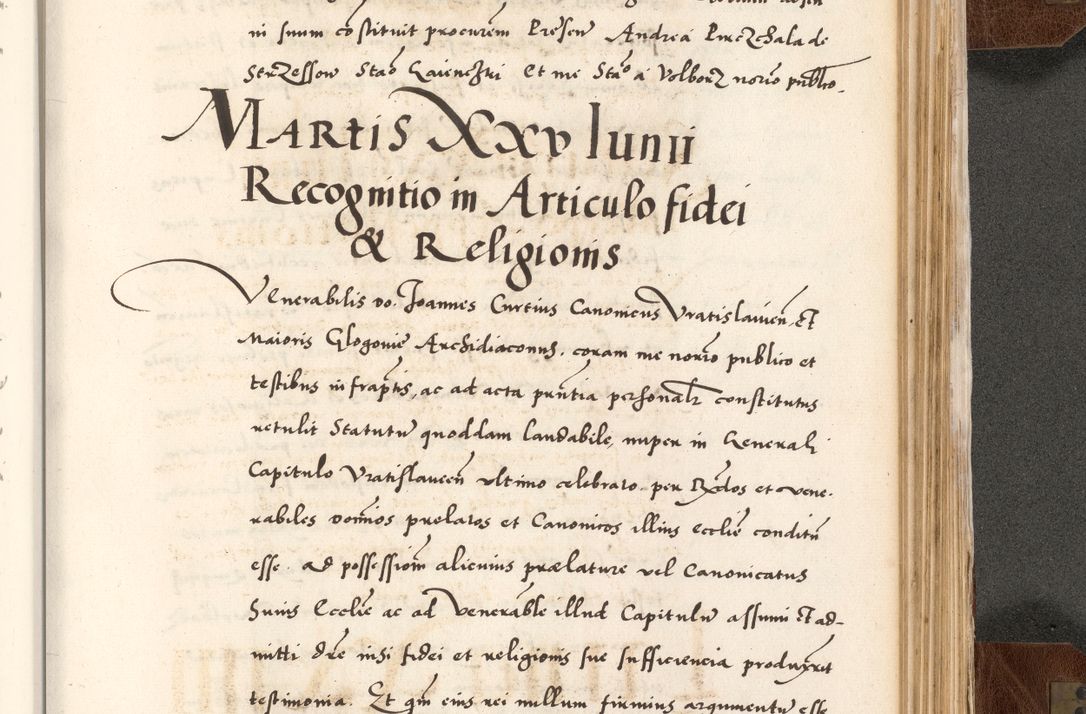 in suum co̅stituit procurem̅ Presen̅ Andrea̅ Przezchala de
Strzessow Stao̅ Gaienczki et me Stao̅ a Volborz norio̅ publco̅.
MARtiS XXV Iunii
Recognitio in Articulo fidei
& Religionis
Venerabilis do. Joannes Curtius Canonicus Vratislavien̅ et
Maioris Glogovie Archidiaconus, coram me norio̅ publico et
testibus infrapt̅is, ac ad acta pn̅tia personalr̅ constitutus
retulit Statutu̅ quoddam laudabile, nuper in Generali
Capitulo Vratislavien̅ ultimo celebrato, per Rx̅dos et vene-
rabiles domi̅os prelatos et Canonicos illius Ecclie̅ conditu̅
esse. ad possessiom̅ alicuius prælature vel Canonicatus
huius Ecclie̅ ac ad Venerab̅le illud Capitulu̅ assumi et ad-
mitti dre̅ nisi fidei et religionis sue sufficiencia produxerit
testimonia. Et qm̅ eius rei nullum firmius argumentu̅ esse